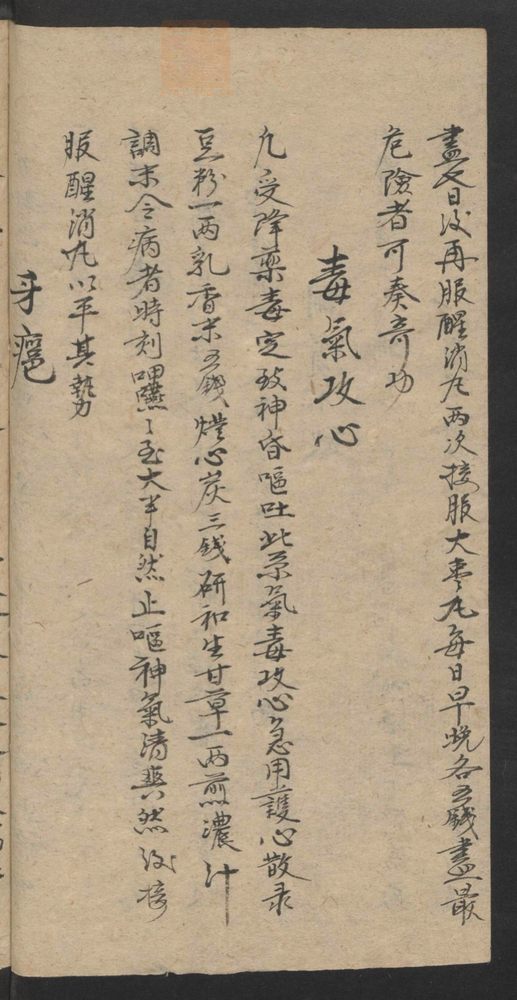 盡次日後再服醒消丸两次接服大枣丸每日早晚各五錢盡最
危險者可奏奇功
毒氣攻心
凡受降藥毒定致神昏嘔吐此系氣毒攻心急用護心散录
豆粉一两乳香末五錢灯心炭三錢研和生甘草一两煎濃汁
調末令病者時刻呷嚥〻至大半自然止嘔神氣清爽然後接
服醒消丸以平其勢
牙癰